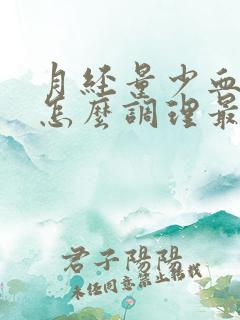 月经量少血
怎麽調理最
君子陽陽
未经同意禁止转载